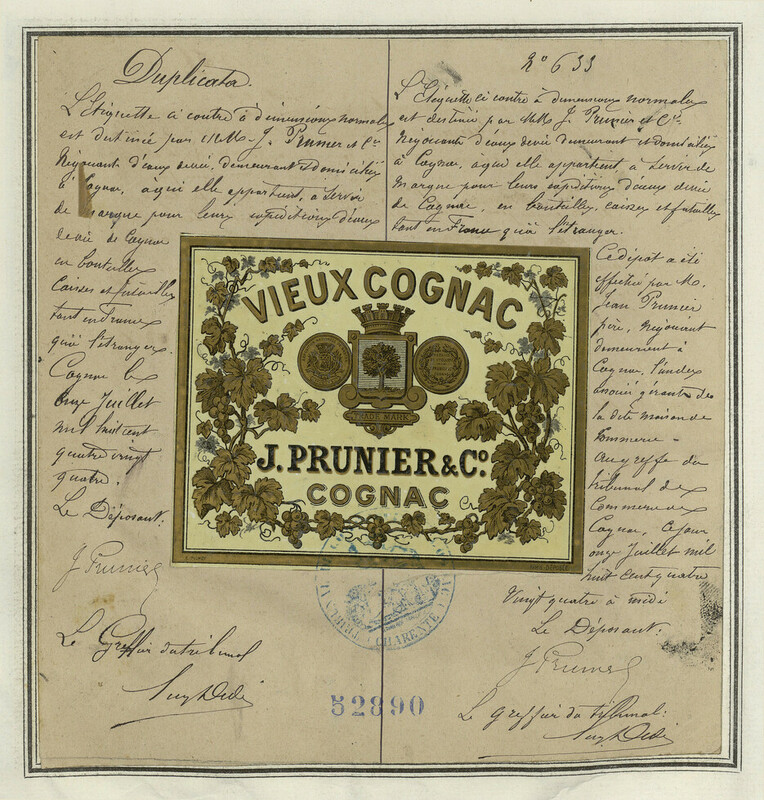 Duplicata.
L'Etiquette ci contre à dimensions normales
est destinée par MM. J. Prunier et Cie
Négociants d'eaux de vie, demeurant & domiciliés
à Cognac, à qui elle appartient, à servir
de marque pour leurs expéditions d'eaux
de vie de Cognac
en bouteilles
Caisses et futailles
tant en France
qu'à l'étranger.
Cognac le
onze Juillet
mil huit cent
quatre vingt
quatre.
Le Déposant:
J Prunier
Le Greffier du tribunal
No 633
L'Etiquette ci contre à dimensions normales
est destinée par MM. J. Prunier et Cie
Négociants d'eaux de vie demeurant et domiciliés
à Cognac, à qui elle appartient à servir de
marque pour leurs expéditions d'eaux de vie
de Cognac, en bouteilles, caisses et futailles
tant en France qu'à l'étranger.
Ce dépôt a été
effectué par M.
Jean Prunier
père, Négociant
demeurant à
Cognac, l'un des
associés gérants des
la dite maison de
Commerce -
au greffe du
tribunal de
Commerce de
Cognac, ce jour
onze Juillet mil
huit cent quatre
vingt quatre à midi
Le Déposant:
J Prunier
Le Greffier du tribunal:
VIEUX COGNAC
TRADE MARK
J. PRUNIER & Co.
COGNAC
CHARENTE
52890